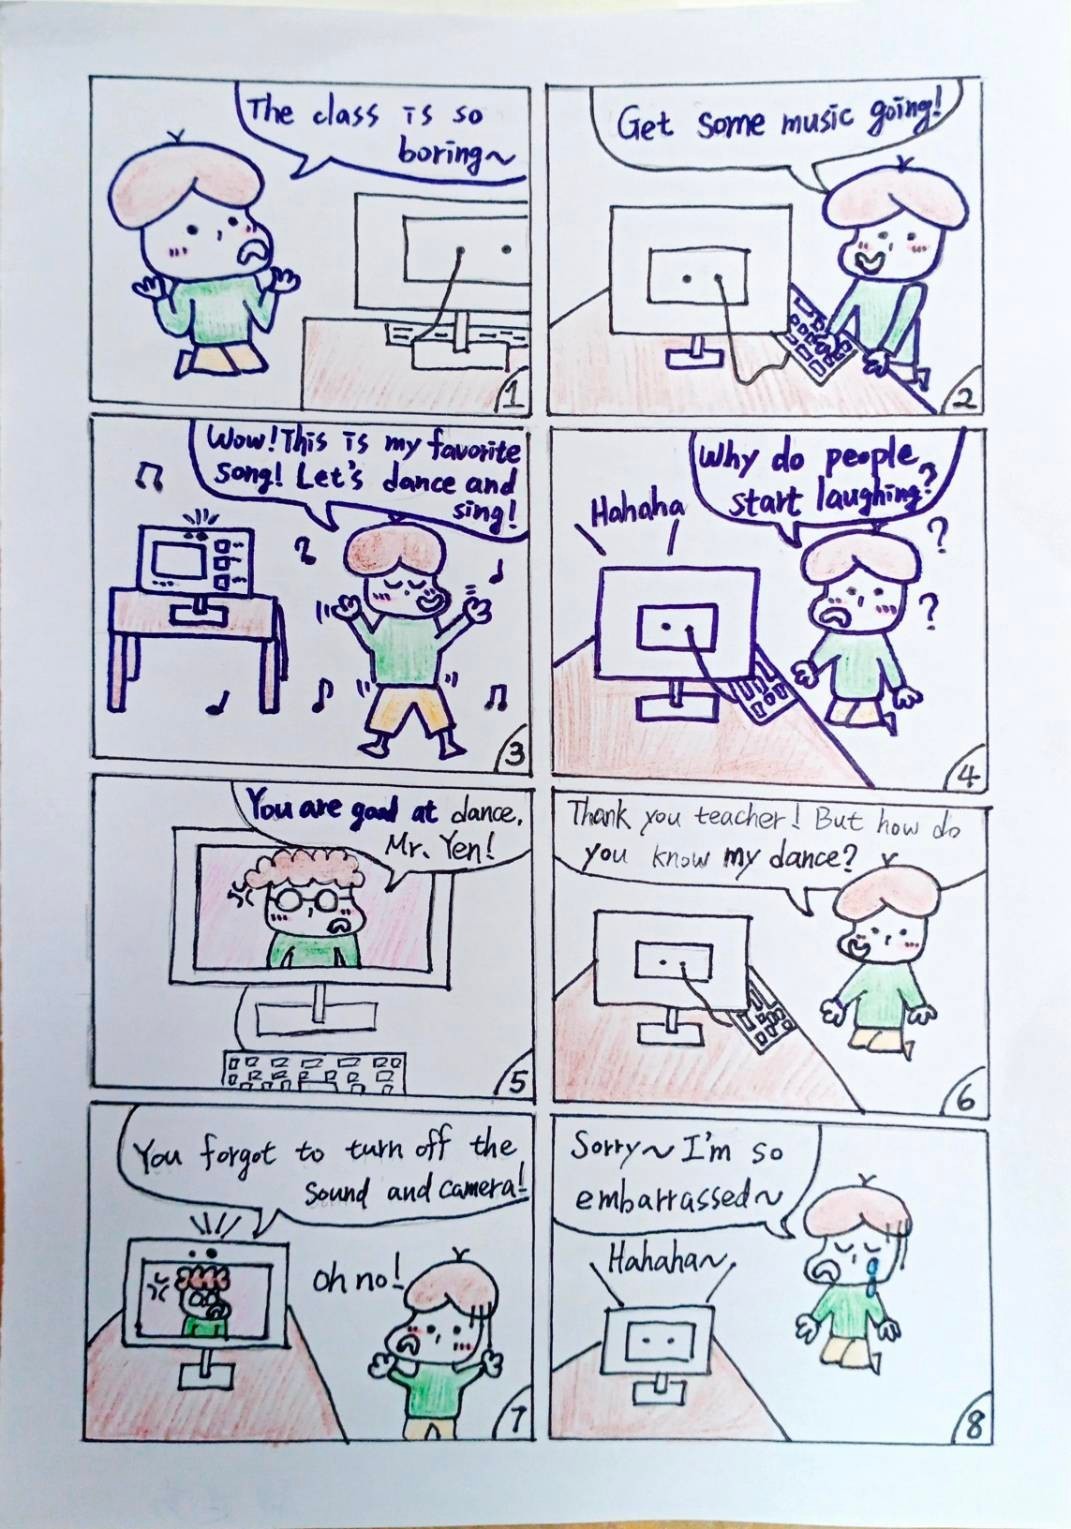 The class is so
boring~
1
Get some music going!
2
Wow! This is my favorite
song! Let's dance and
sing!
3
Why do people
start laughing?
Hahaha
?
?
4
You are good at dance,
Mr. Yen!
5
Thank you teacher! But how do
you know my dance?
6
You forgot to turn off the
sound and camera!
oh no!
7
Sorry~ I'm so
embarrassed~
Hahaha~
8